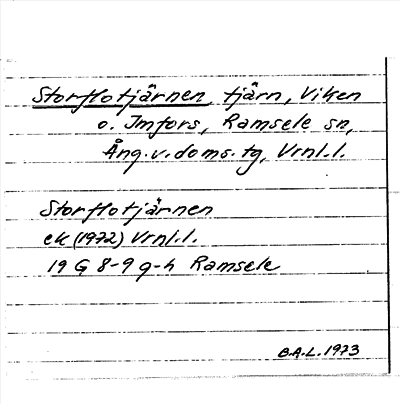 Storflotjärnen, tjärn, Viken
o. Imfors, Ramsele sn,
Ång.v.doms.tg, Vrnl.l.
Storflotjärnen
ek (1972) Vrnl.l.
19 G 8-9 g-h Ramsele
B.A.L. 1973